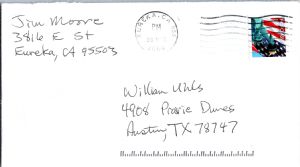 Jim Moore
3816 E St
Eureka, CA 95503
EUREKA, CA
PM
William
4908 Prairie Dunes
Austin, TX 78747